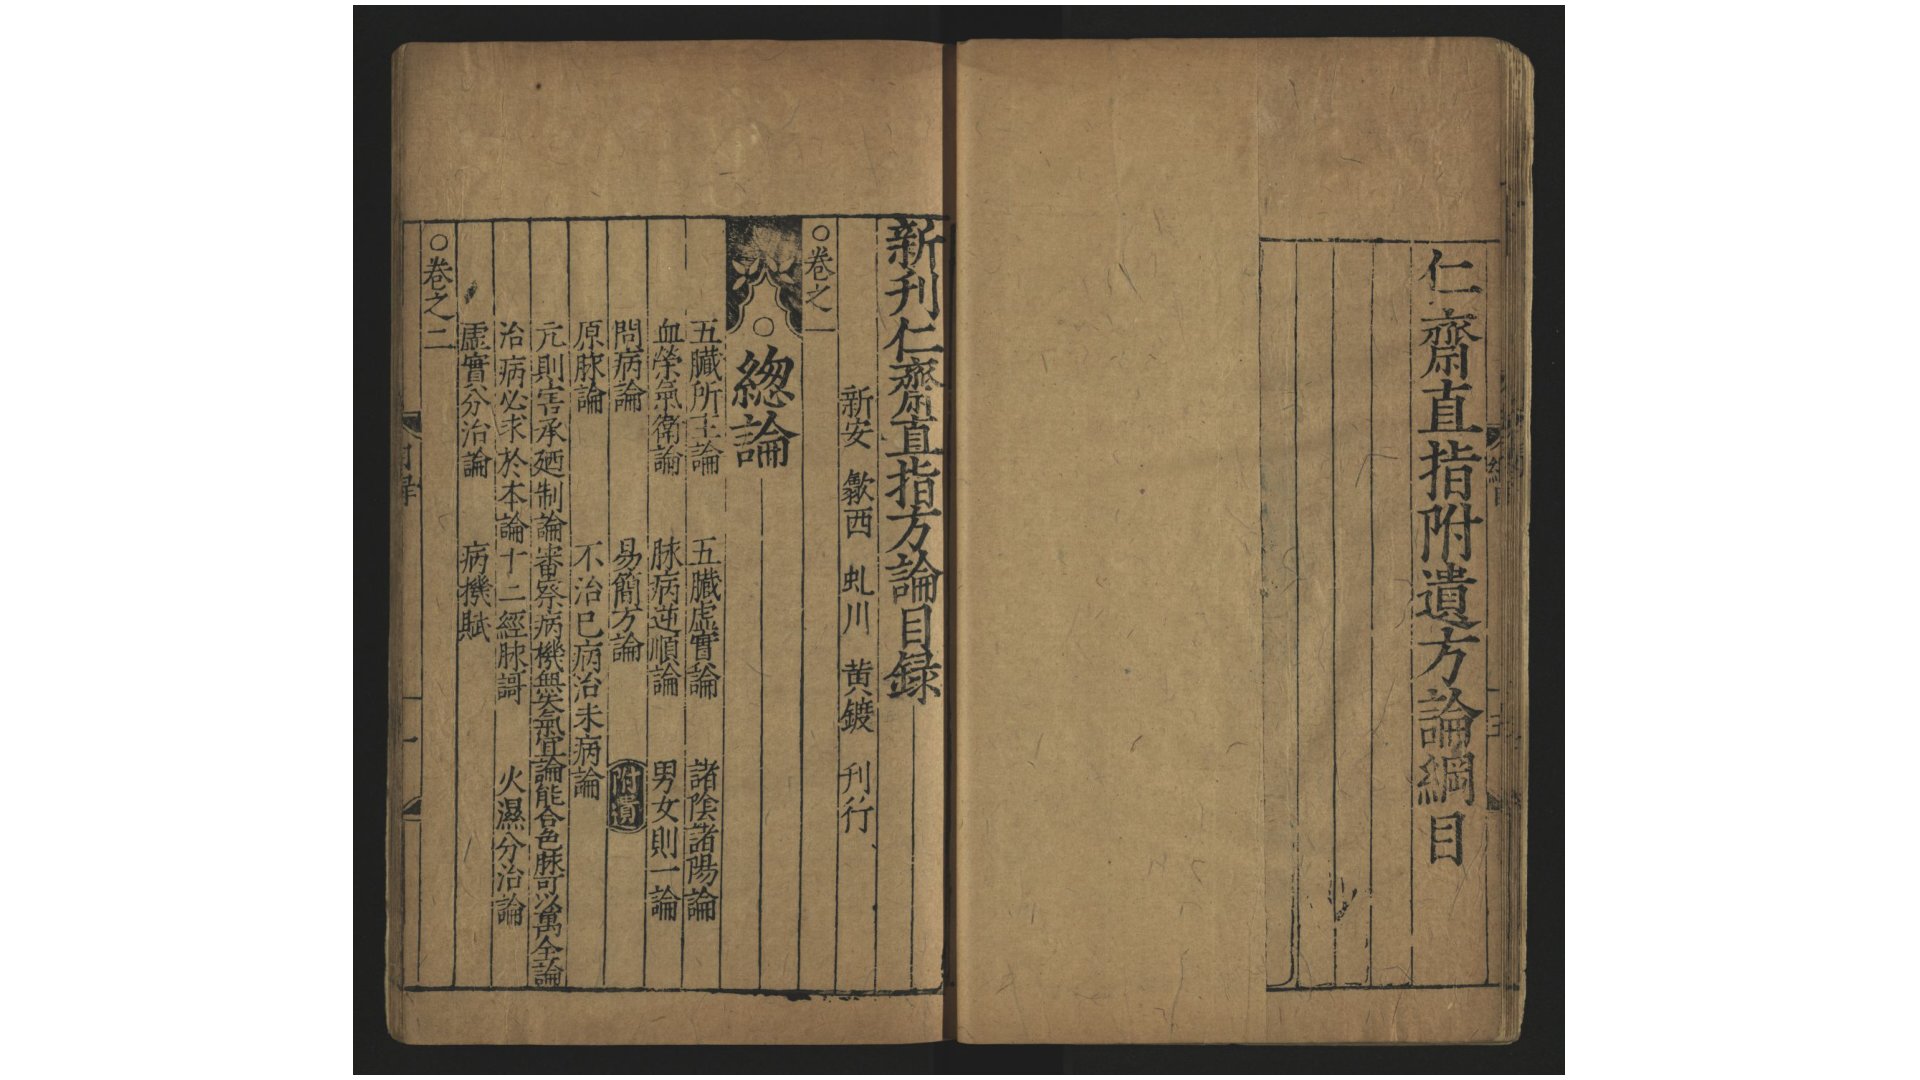 仁齋直指附遺方論綱目
新刊仁齋直指方論目録
新安 歙西 虬川 黄鍍 刊行
○卷之一
○總論
五臟所主論 五臟虛實論 諸陰諸陽論
血榮氣衛論 脉病逆順論 男女則一論
問病論 易簡方論 附遺
原脉論 不治已病治未病論
亢則害承廼制論 審察病機無失氣宜論 能合色脉可以萬全論
治病必求於本論 十二經脉謌 火濕分治論
虛實分治論 病機賦
○卷之二
目録
一